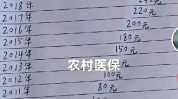 2018年 240元
2017年 220元
2016年 200元
2015年 180元
2014年 150元
农村医保
2012年 100元
2011年 80元